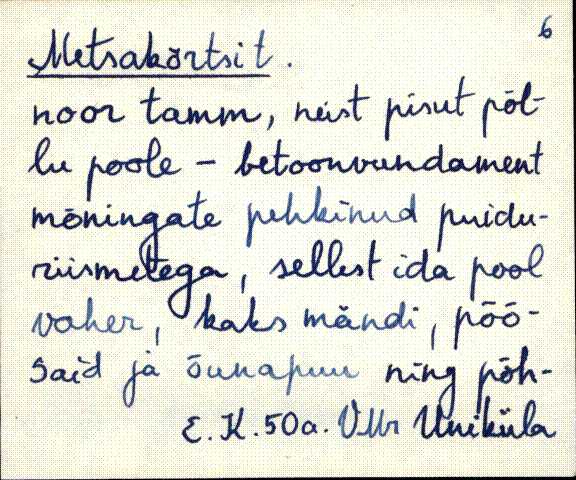 6
Metsakõrtsit.
noor tamm, neist pisut põl-
lu poole - betoonvundament
mõningate pehkinud puidu-
riismetega, sellest ida pool
vaher, kaks mändi, põõ-
said ja õunapuu ning põh-
E. K. 50a. VMr Uuiküla